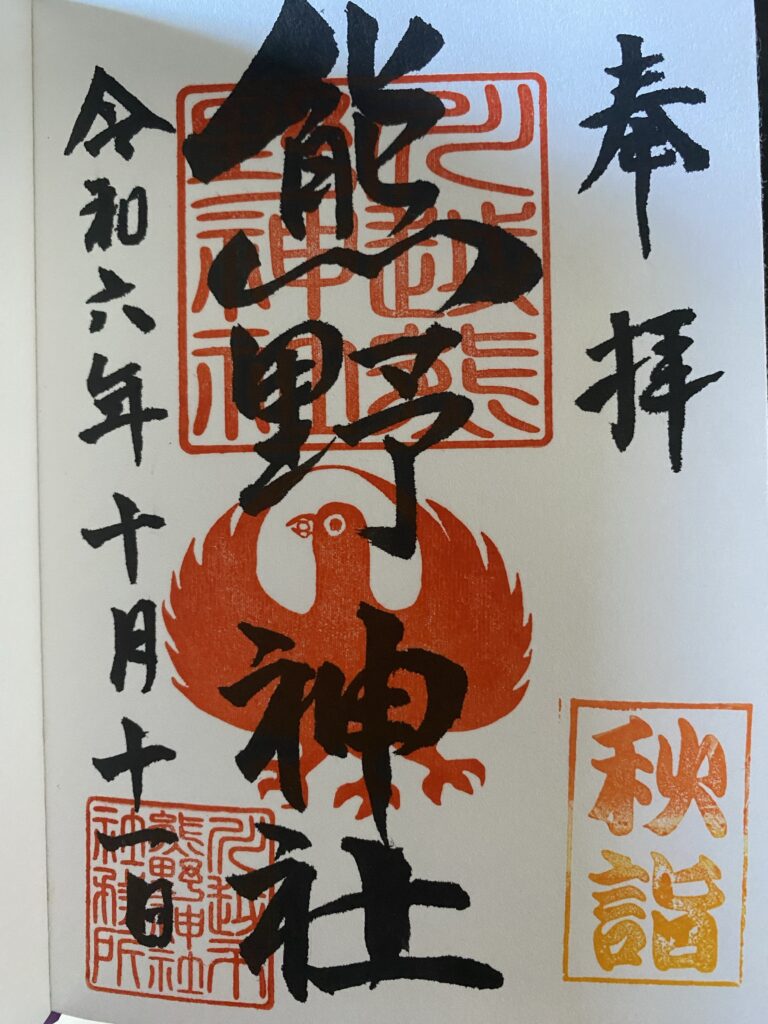 奉拝
秋詣
川越熊
野神社
熊野神社
令和六年十月十一日
川越市
熊野神社
社務所